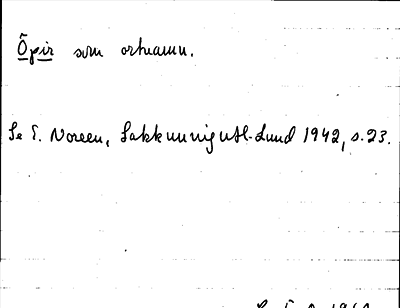 Ôpir som ortnamn.
Se E. Noreen, Sakkunnigutl. Lund 1942, s. 23.